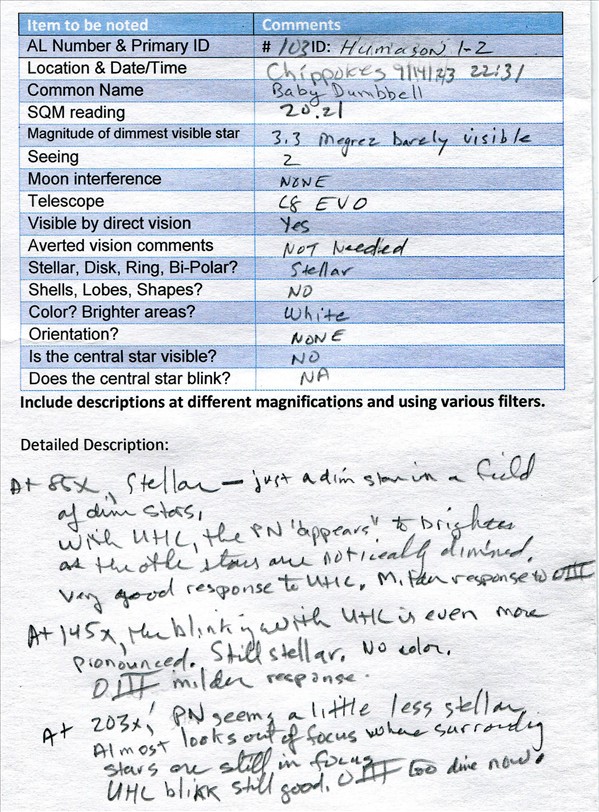 Item to be noted Comments
AL Number & Primary ID # 103 ID: Humason 1-2
Location & Date/Time Chippokes 9/14/23 22:31
Common Name Baby Dumbbell
SQM reading 20.21
Magnitude of dimmest visible star 3.3 Megrez barely visible
Seeing 2
Moon interference NONE
Telescope C8 EVO
Visible by direct vision Yes
Averted vision comments NOT Needed
Stellar, Disk, Ring, Bi-Polar? Stellar
Shells, Lobes, Shapes? NO
Color? Brighter areas? White
Orientation? NONE
Is the central star visible? NO
Does the central star blink? NA
Include descriptions at different magnifications and using various filters.
Detailed Description:
At 85x, Stellar — just a dim star in a field
of dim stars,
with UHC, the PN "appears" to brighten
as the othe stars are noticeally dimined.
Very good response to UHC. Milder response to OIII
At 145x, the blinking with UHC is even more
pronounced. Still stellar. No color.
OIII milder response.
At 203x, PN seems a little less stellar
Almost looks out of focus where surroundig
stars are still in focus
UHC blikk still good. OIII too dim now.